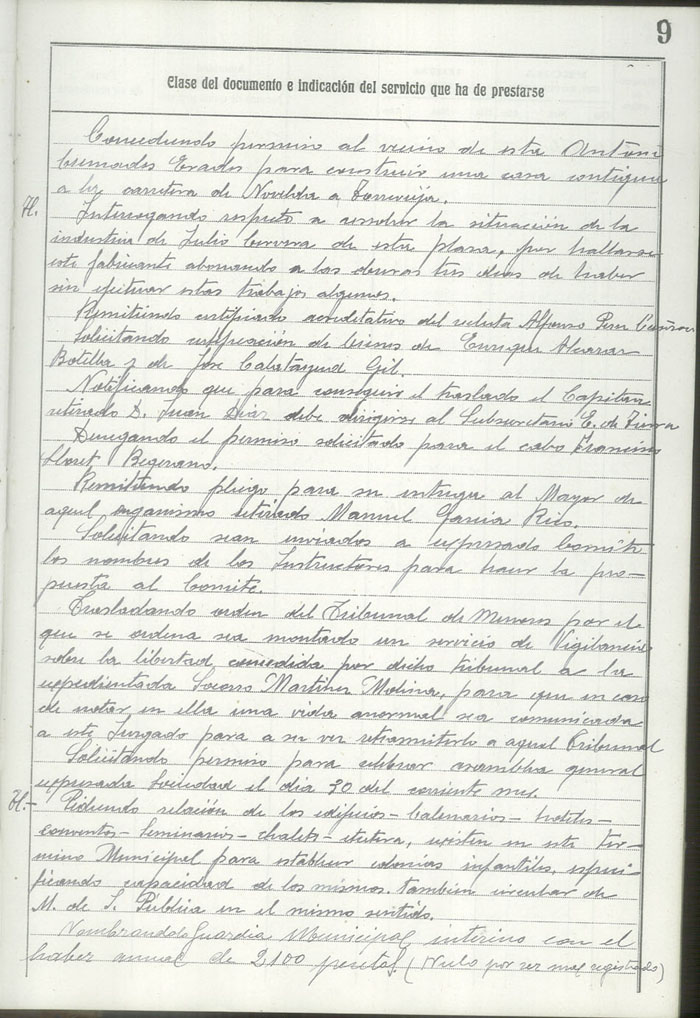 9
Clase del documento e indicación del servicio que ha de prestarse
Concediendo permiso al vecino de esta Antonio
Erades para construir una casa contigua
a la carretera de Novelda a Torrevieja.
H.
Interrogando respecto a resolver la situación de la
industria de Julio Cervera de esta plaza, por hallarse
este fabricante abonando a los obreros tres dias de haber
sin efectuar estos trabajos algunos.
Remitiendo certificado acreditativo del recluta Alfonso Perez
Solicitando certificación de bienes de Enrique Alcaraz
Botella y de Jose Calatayud Gil.
Notificando que para conseguir el traslado el Capitan
retirado D. Juan Diaz debe dirigirse al Subsecretario E. de Tierra
Denegando el permiso solicitado para el cabo Francisco
Lloret Begerano.
Remitiendo pliego para su entrega al Mayor de
aquel organismo retirado Manuel Garcia Rico.
Solicitando sean enviados a expresado Comité
los nombres de los Instructores para hacer la pro-
puesta al Comite.
Trasladando orden del Tribunal de Menores por el
que se ordena sea montado un servicio de Vigilancia
sobre la libertad concedida por dicho tribunal a la
expedientada Socorro Martinez Molina, para que en caso
de notar en ella una vida anormal sea comunicada
a este Juzgado para a su vez retramitirlo a aquel Tribunal
Solicitando permiso para celebrar asamblea general
expresada Sociedad el dia 30 del corriente mes.
H.-
Pidiendo relación de los edificios - balenarios - hoteles -
conventos - Seminarios - chalets - etcetera, existen en este Ter-
mino Municipal para establecer colonias infantiles, especi-
ficando capacidad de los mismos. tambien circular de
M. de I. Publica en el mismo sentido.
Nombrando Guardia Municipal interino con el
haber annual de 2100 pesetas (Nulo por ser mal registrado)